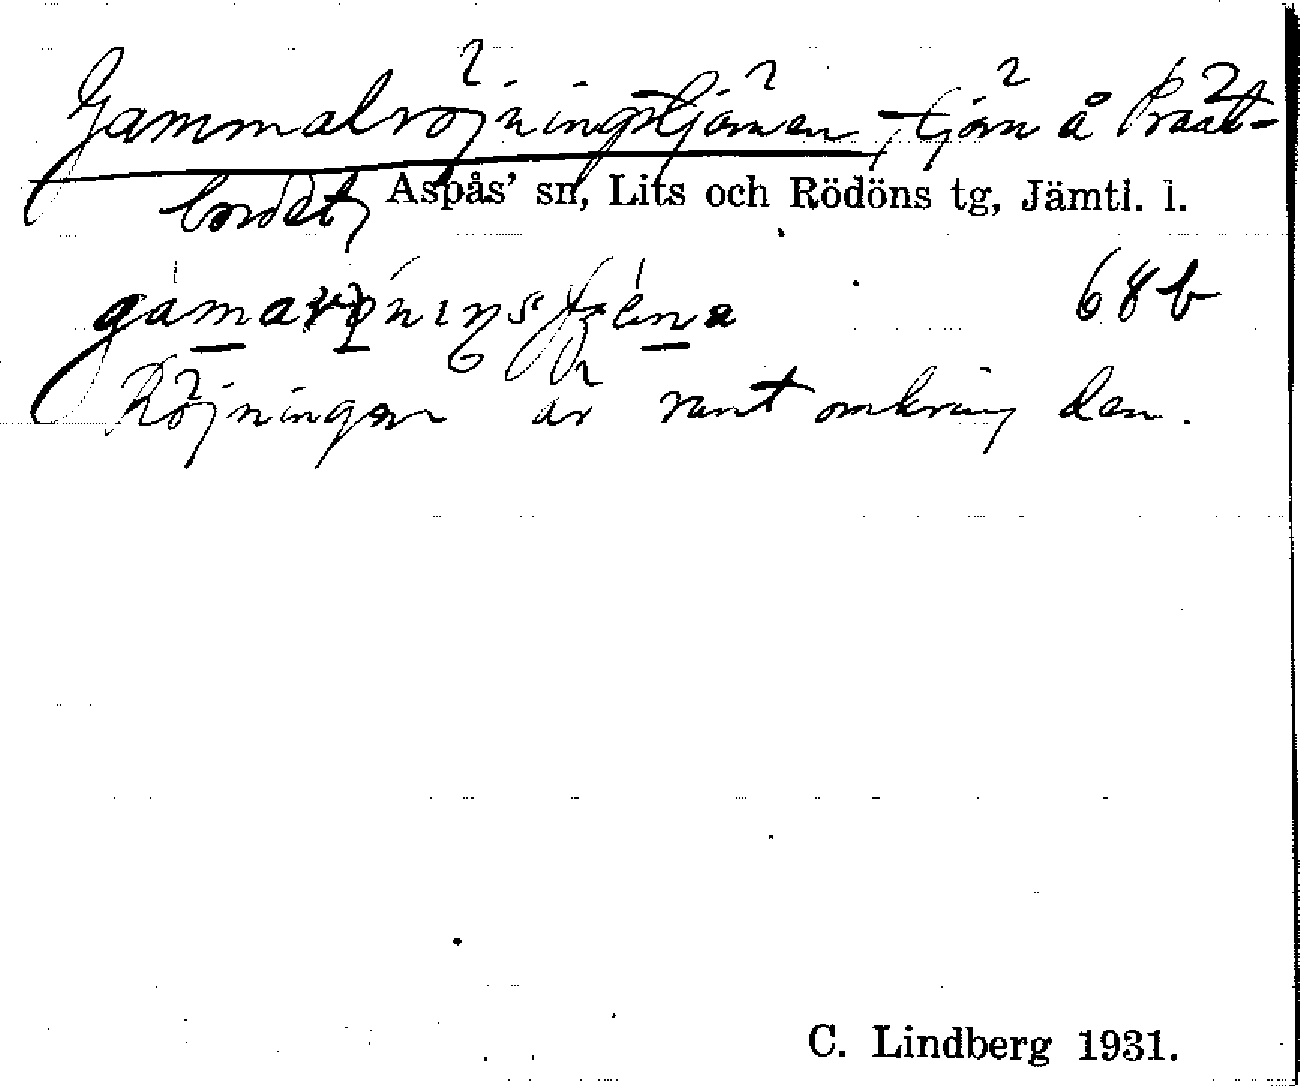 Gammalröjningstjärnen, tjärn å Präst-
bordet, Aspås' sn, Lits och Rödöns tg, Jämtl. l.
68 b
Röjningen är runt omkring den.
C. Lindberg 1931.